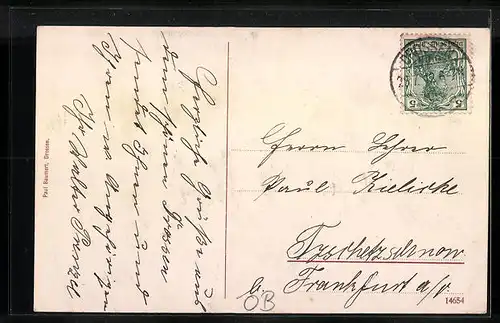 Herzliche Grüße aus
dem schönen Drossen
sendet Ihnen und
Ihren w. Angehörigen
Ihr Walter
Paul Baumert, Drossen.
5 5
Herrn Lehrer
Paul Kielicke
Tzschetzschnow
b. Frankfurt a/o.
OB
14654